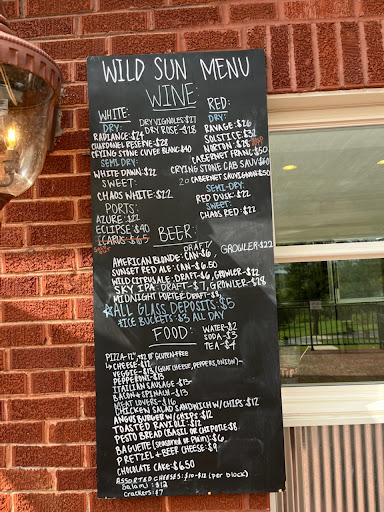 WILD SUN MENU
WINE
WHITE:
DRY:
DRY VIGNOLES $27
RADIANCE: $24 DRY ROSE - $18
CHARDONEL RESERVE - $28
CRYING STONE CUVEE BLANC $40
SEMI DRY:
WHITE DAWN: $22
SWEET:
CHAOS WHITE: $22
PORTS:
AZURE: $22
ECLIPSE $40
ICARUS: $65
RED:
DRY:
RAVAGE: $26
SOLSTICE $32
NORTON: $28
CABERNET FRANC $50
CRYING STONE CAB SAUV $60
CABERNET SAUVIGNON $50
SEMI-DRY:
RED DUSK: $22
SWEET:
CHAOS RED: $22
BEER:
DRAFT/ GROWLER $22
AMERICAN BLONDE: CAN - $6
SUNSET RED ALE: CAN - $6.50
WILD CITRUS ALE: DRAFT - $6, GROWLER - $22
SKY IPA: DRAFT - $7, GROWLER - $28
MIDNIGHT PORTER: DRAFT - $8
ALL GLASS DEPOSITS: $5
ICE BUCKETS: $3 ALL DAY
FOOD:
WATER - $2
SODA - $3
TEA - $4
PIZZA - 12" GLUTEN-FREE
CHEESE - $12
VEGGIE - $13 (GOAT CHEESE, PEPPERS, ONION)
PEPPERONI - $13
ITALIAN SAUSAGE - $13
BACON & SPINACH - $13
MEAT LOVERS - $16
CHICKEN SALAD SANDWICH W/ CHIPS: $12
ANGUS BURGER W/ CHIPS: $12
TOASTED RAVIOLI: $12
PESTO BREAD (BASIL OR CHIPOTLE $8
BAGUETTE (SEASONED OR PLAIN): $6
PRETZEL + BEER CHEESE: $9
CHOCOLATE CAKE: $6.50
ASSORTED CHEESES: $10-$12 (per block)
Salami: $12
Crackers: $7